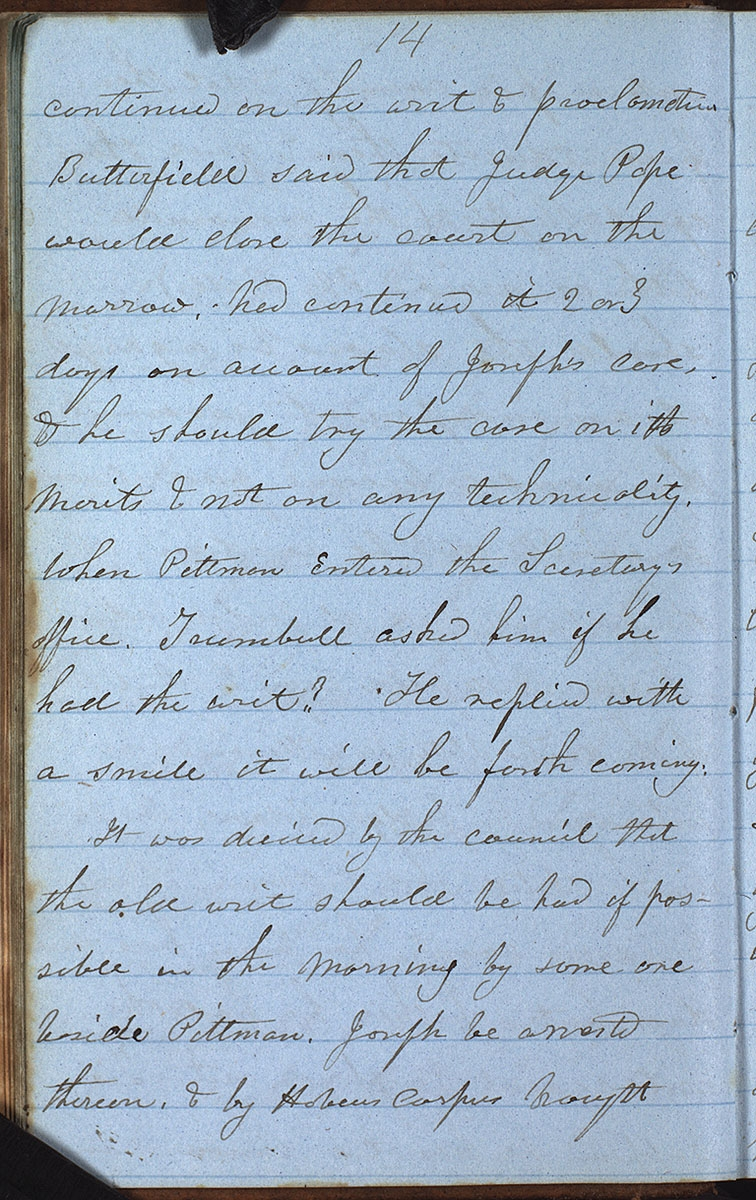 14
continued on the writ & proclamation
Butterfield said that Judge Pope
would close the court on the
morrow. had continued it 2 or 3
days on account of Joseph's case,
& he should try the case on its
merits & not on any technicality.
When Pittman entered the Secretarys
office. Trumbull asked him if he
had the writ? He replied with
a smile it will be forth coming.
It was decided by the council that
the old writ should be had if pos-
sible in the morning by some one
beside Pittman. Joseph be arrested
thereon. & by Habeus corpus brought